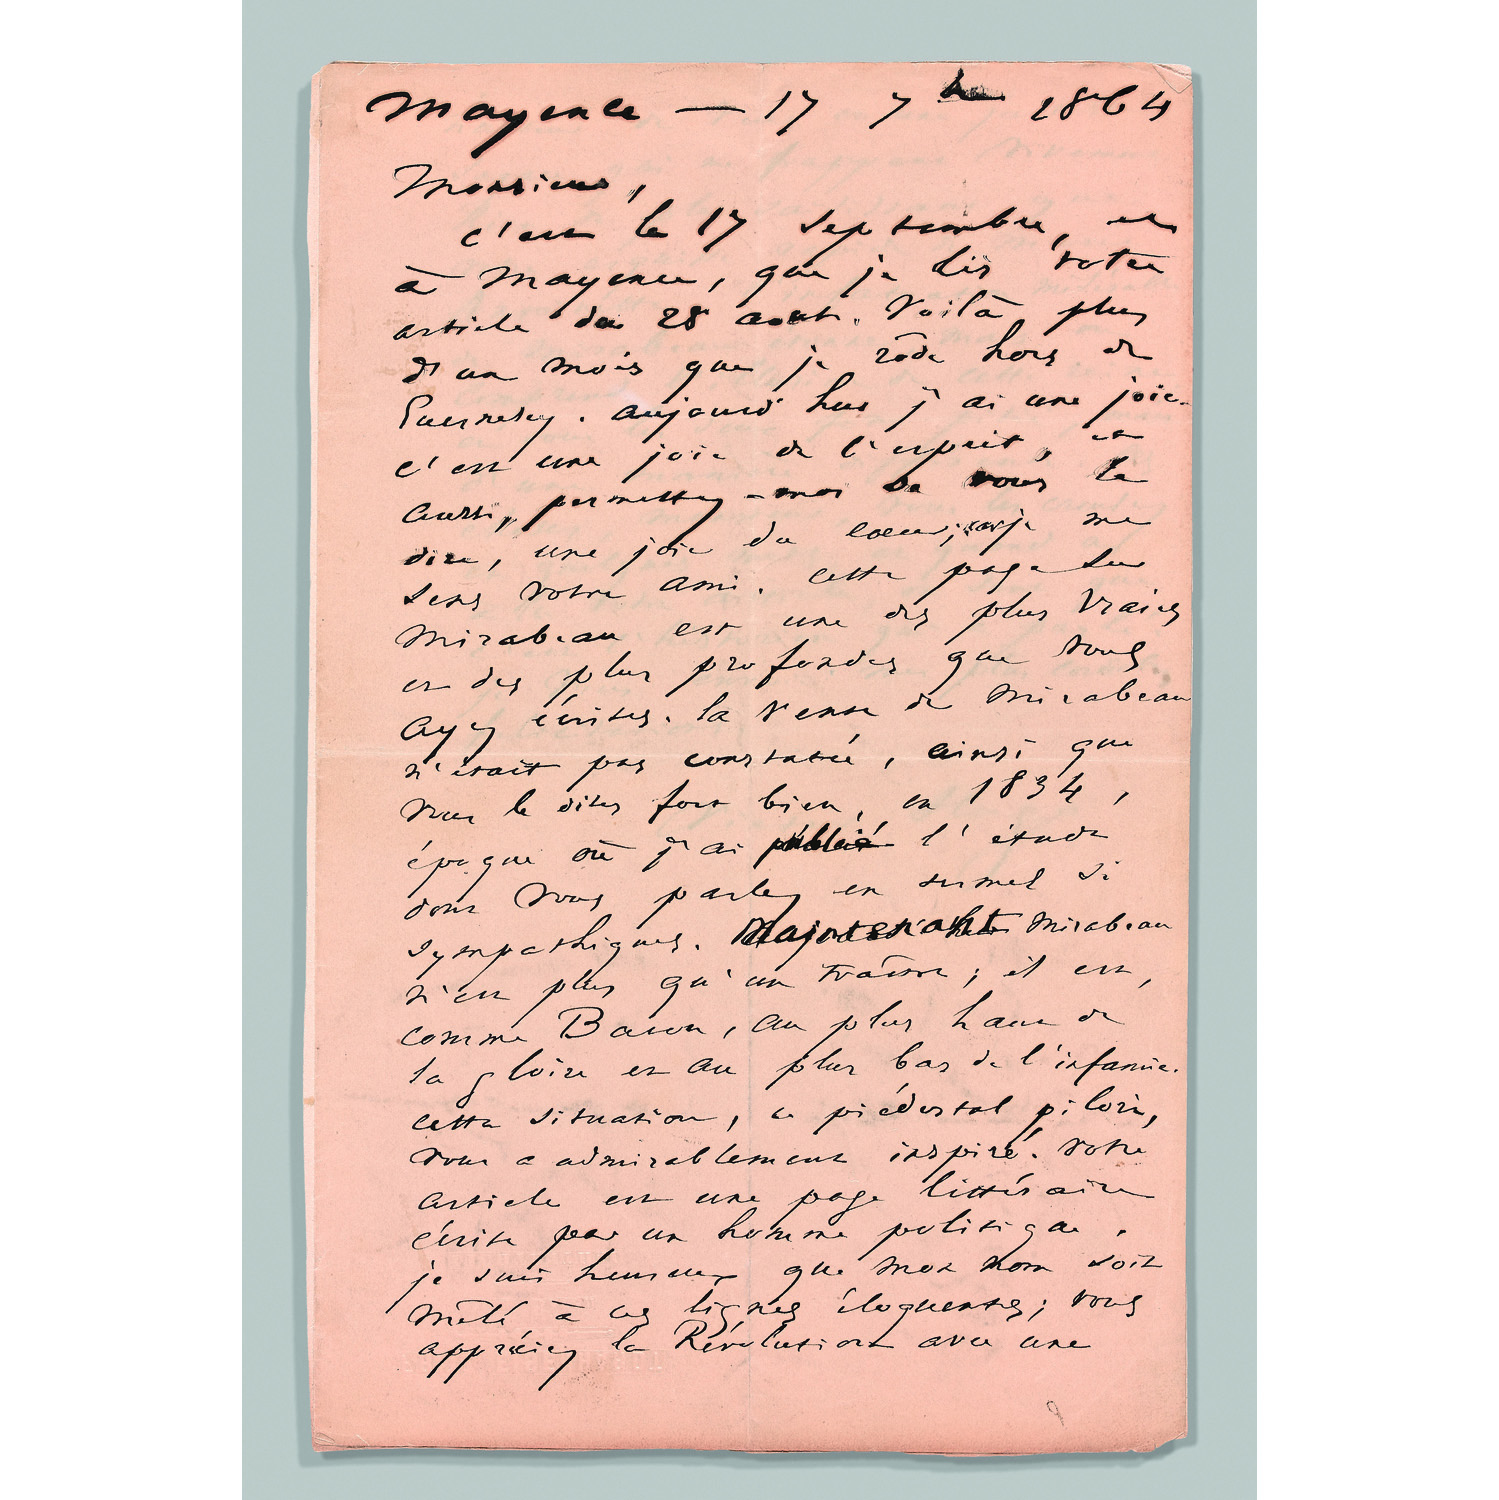 Mayence — 17 7bre 1864
Monsieur,
c'est le 17 septembre, et
à Mayence, que je lis votre
article du 28 août. Voilà plus
d'un mois que je rôde hors de
Guernesey. aujourd'hui j'ai une joie.
c'est une joie de l'esprit, et
aussi, permettez-moi de vous le
dire, une joie du coeur; car je me
sens votre ami. cette page sur
Mirabeau est une des plus vraies
et des plus profondes que vous
ayez écrites. la vente de Mirabeau
n'était pas constatée, ainsi que
vous le dites fort bien, en 1834,
époque où j'ai publié l'étude
dont vous parlez en termes si
sympathiques. Maintenant Mirabeau
n'est plus qu'un traître; il est,
comme Bacon, au plus haut de
la gloire et au plus bas de l'infamie.
cette situation, ce piédestal pilori,
vous a admirablement inspiré. votre
article est une page littéraire
écrite par un homme politique.
je suis heureux que mon nom soit
mêlé à ces lignes éloquentes; vous
appréciez la Révolution avec une